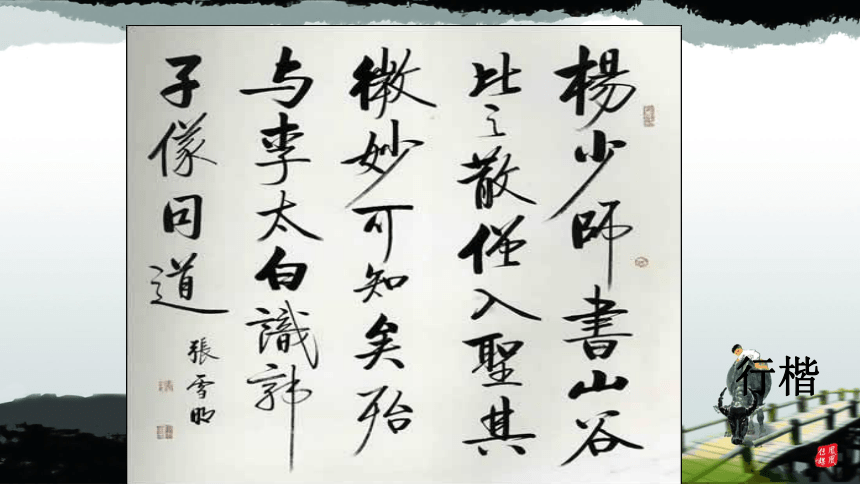 楊少師書山谷
比之散僧入聖其
微妙可知矣殆
与李太白識郭
子儀同道
張雪明
行楷